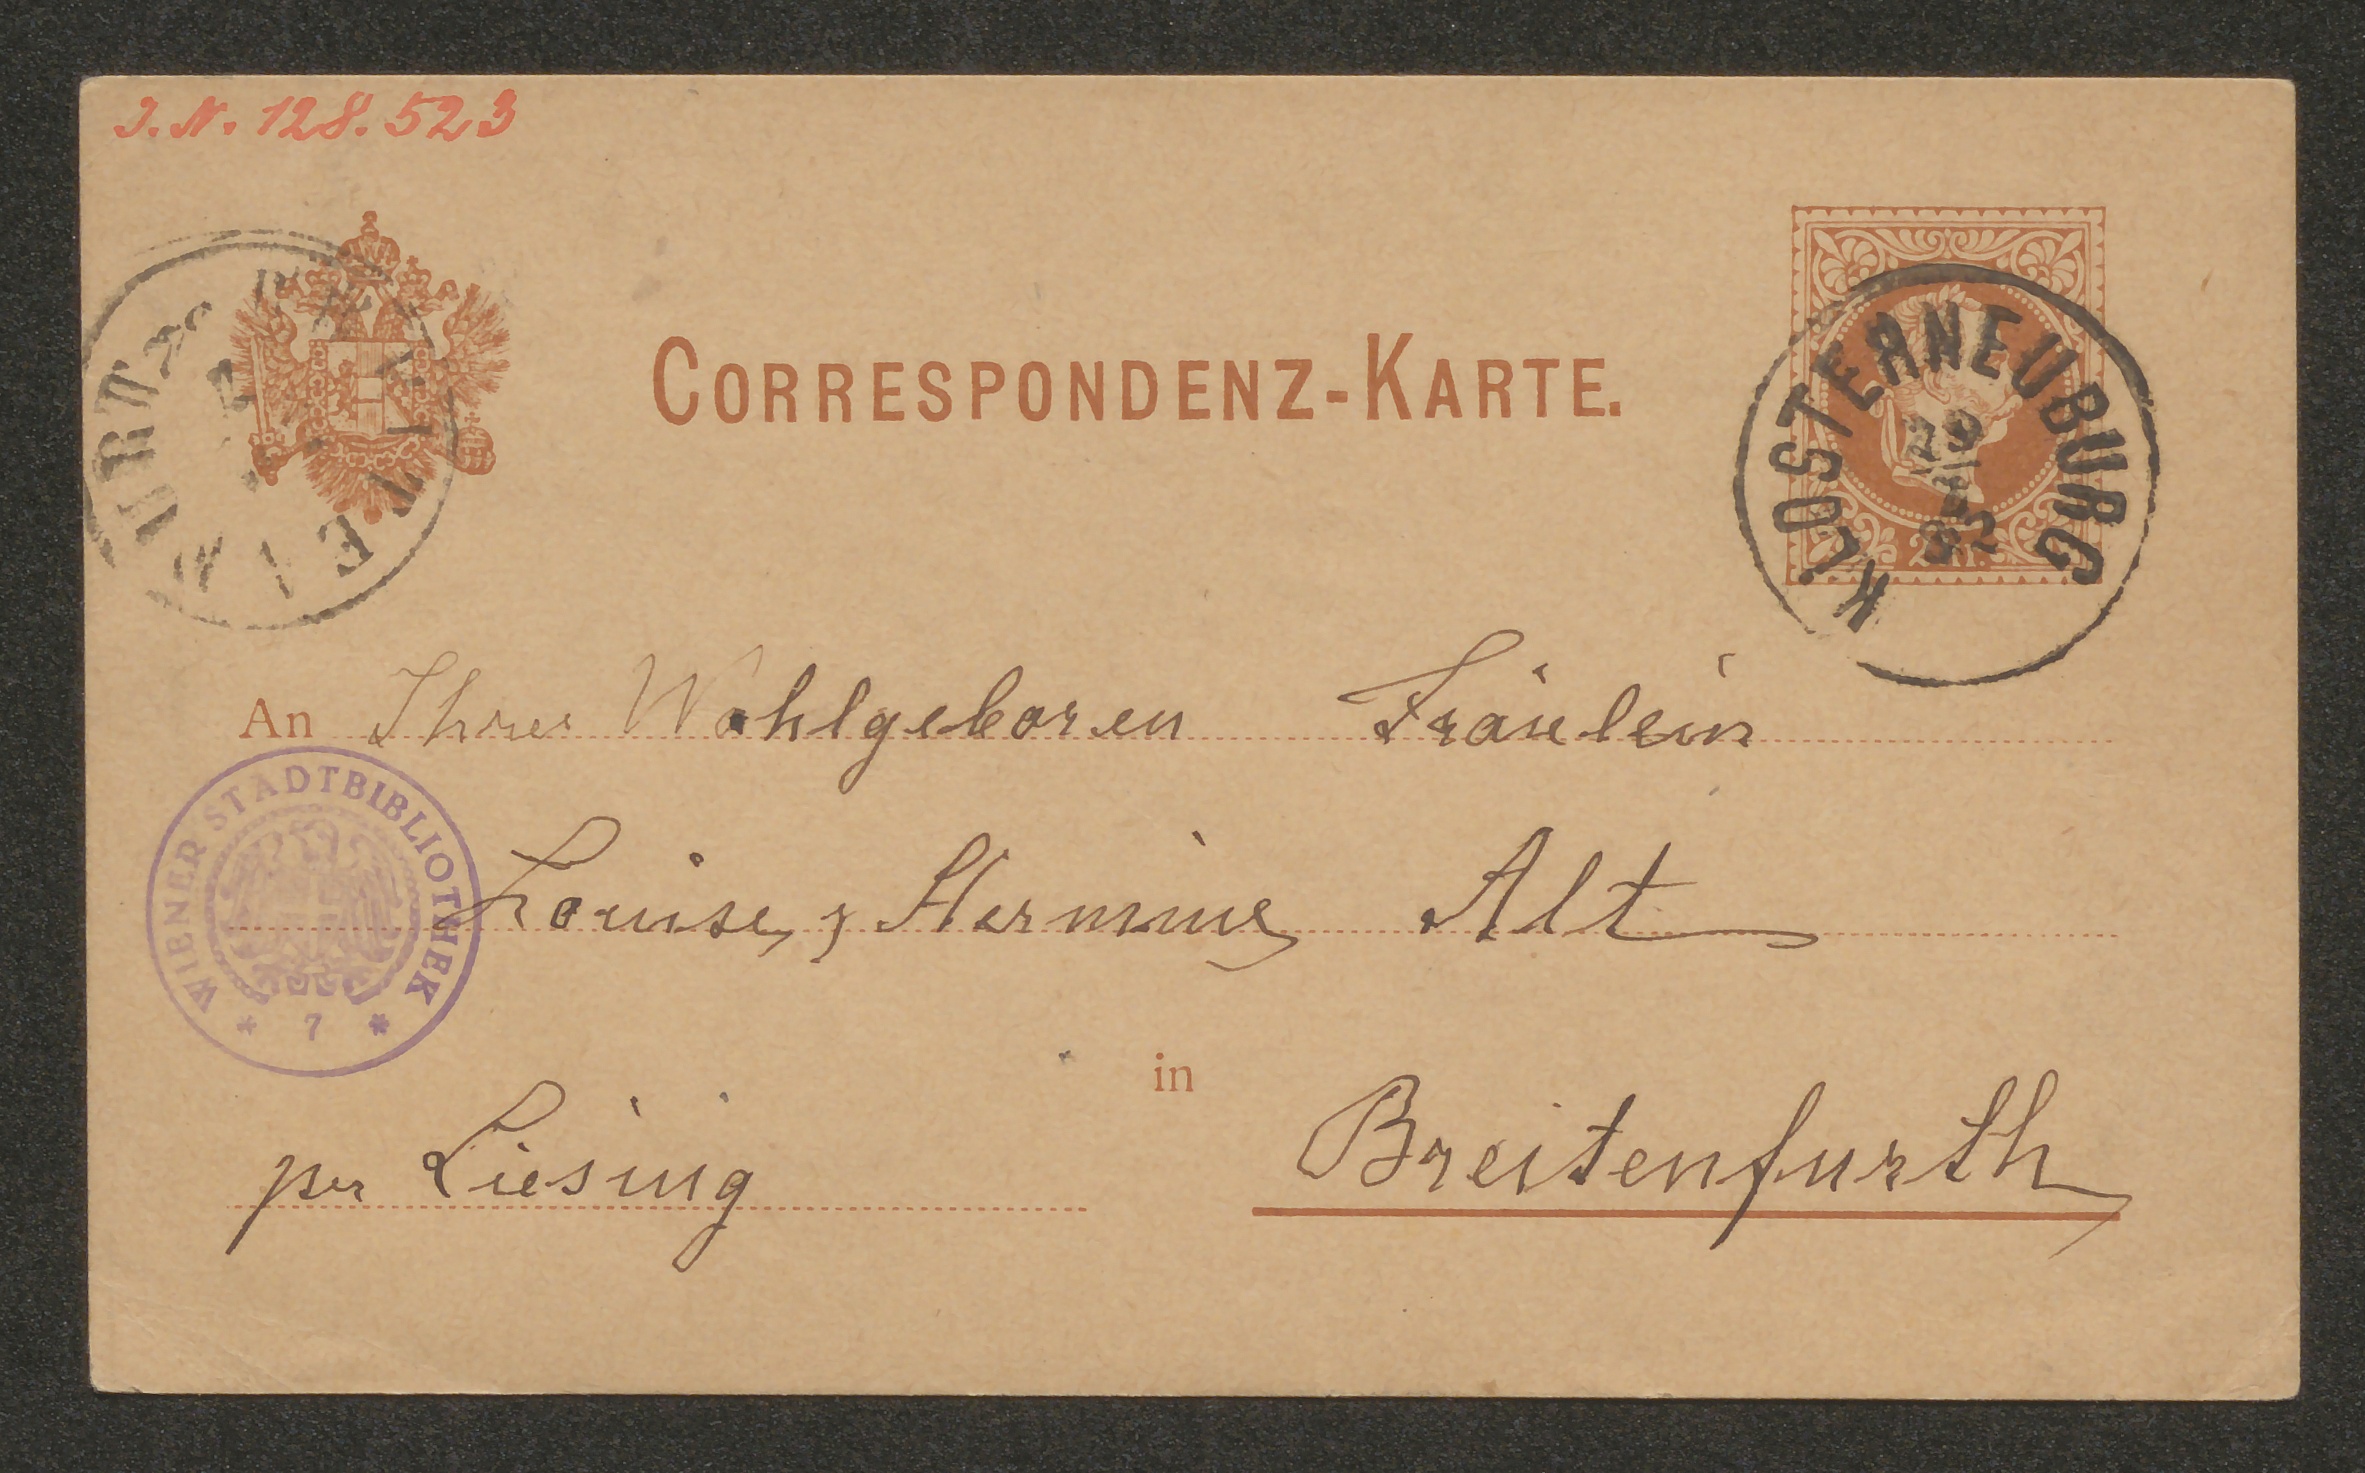 J. N. 128.523
CORRESPONDENZ-KARTE.
KLOSTERNEUBURG
29
82
2 kr.
An Ihrer Wohlgeboren Fräulein
Louise, & Hermine Alt
WIENER STADTBIBLIOTHEK
* 7 *
in
per Liesing Breitenfurth